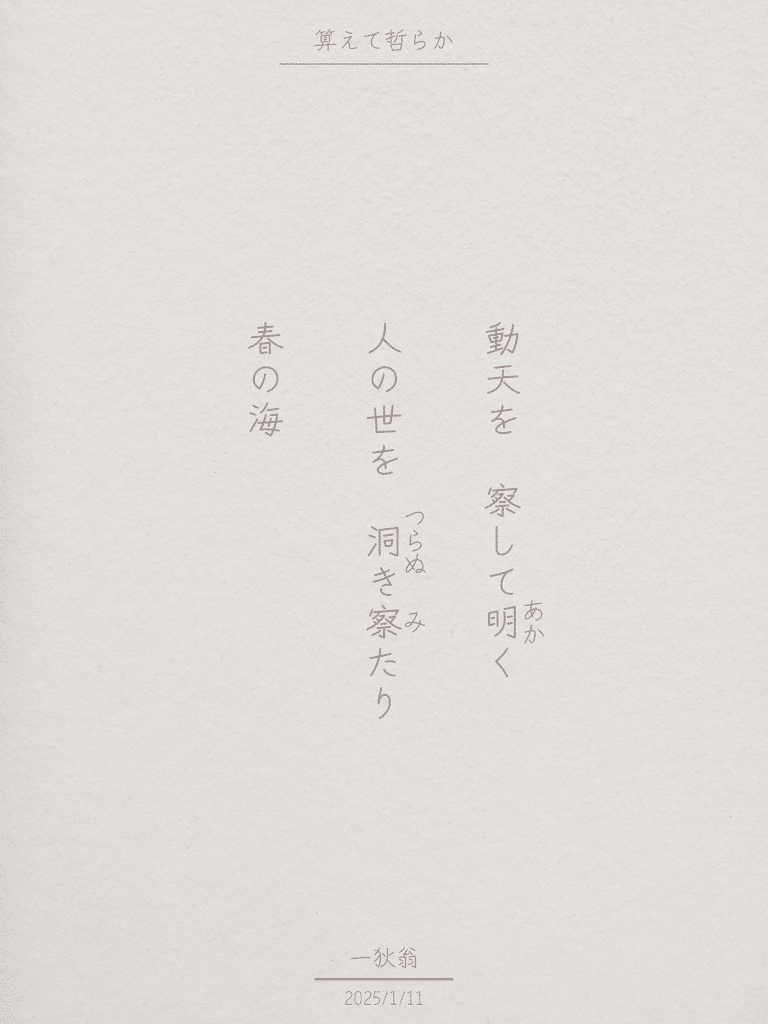 算えて哲らか
動天を　察して明く
あか
人の世を　洞き察たり
つらぬ　み
春の海
一狄翁
2025/1/11